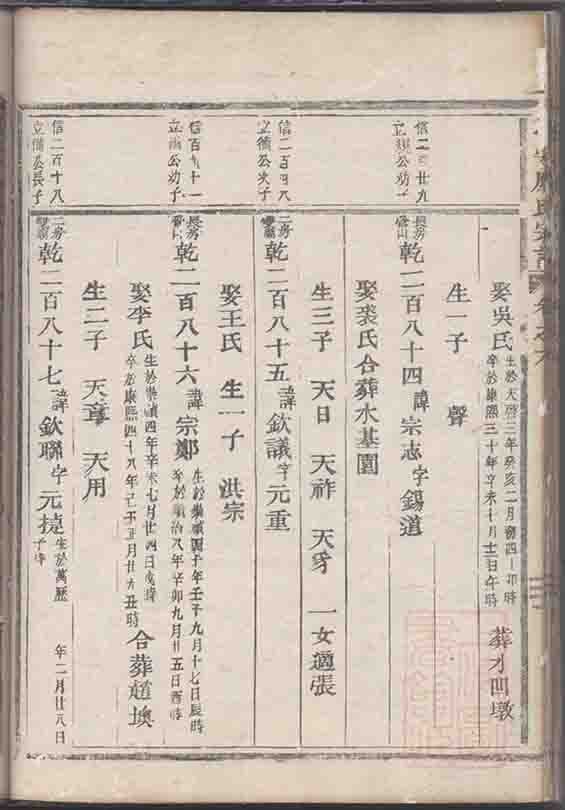 娶吳氏 生於天啓三年癸亥二月初四日卯時 卒於康熙三十年辛未十月十二日午時 葬才凹墩
生一子 聲
信二百廿九
長房
乾二百八十四 諱宗志 字錫道
娶裘氏 合葬水基園
生三子 天日 天祚 天豸 一女適張
信二百四八
立備公次子
二房
乾二百八十五 諱欽議 字元重
娶王氏 生一子 洪宗
立 公幼子
長房
乾二百八十六 諱宗鄭 年壬子九月十七日辰時 卒於順治八年辛卯九月廿五日酉時
娶李氏 生於崇禎四年辛未七月廿四日 時 卒於康熙四十八年己丑五月廿六丑時 合葬趙墺
生二子 天章 天用
信二百十八
立備公長子
二房
乾二百八十七 諱欽聯 字元捷 生於萬歷 年二月廿八日子時